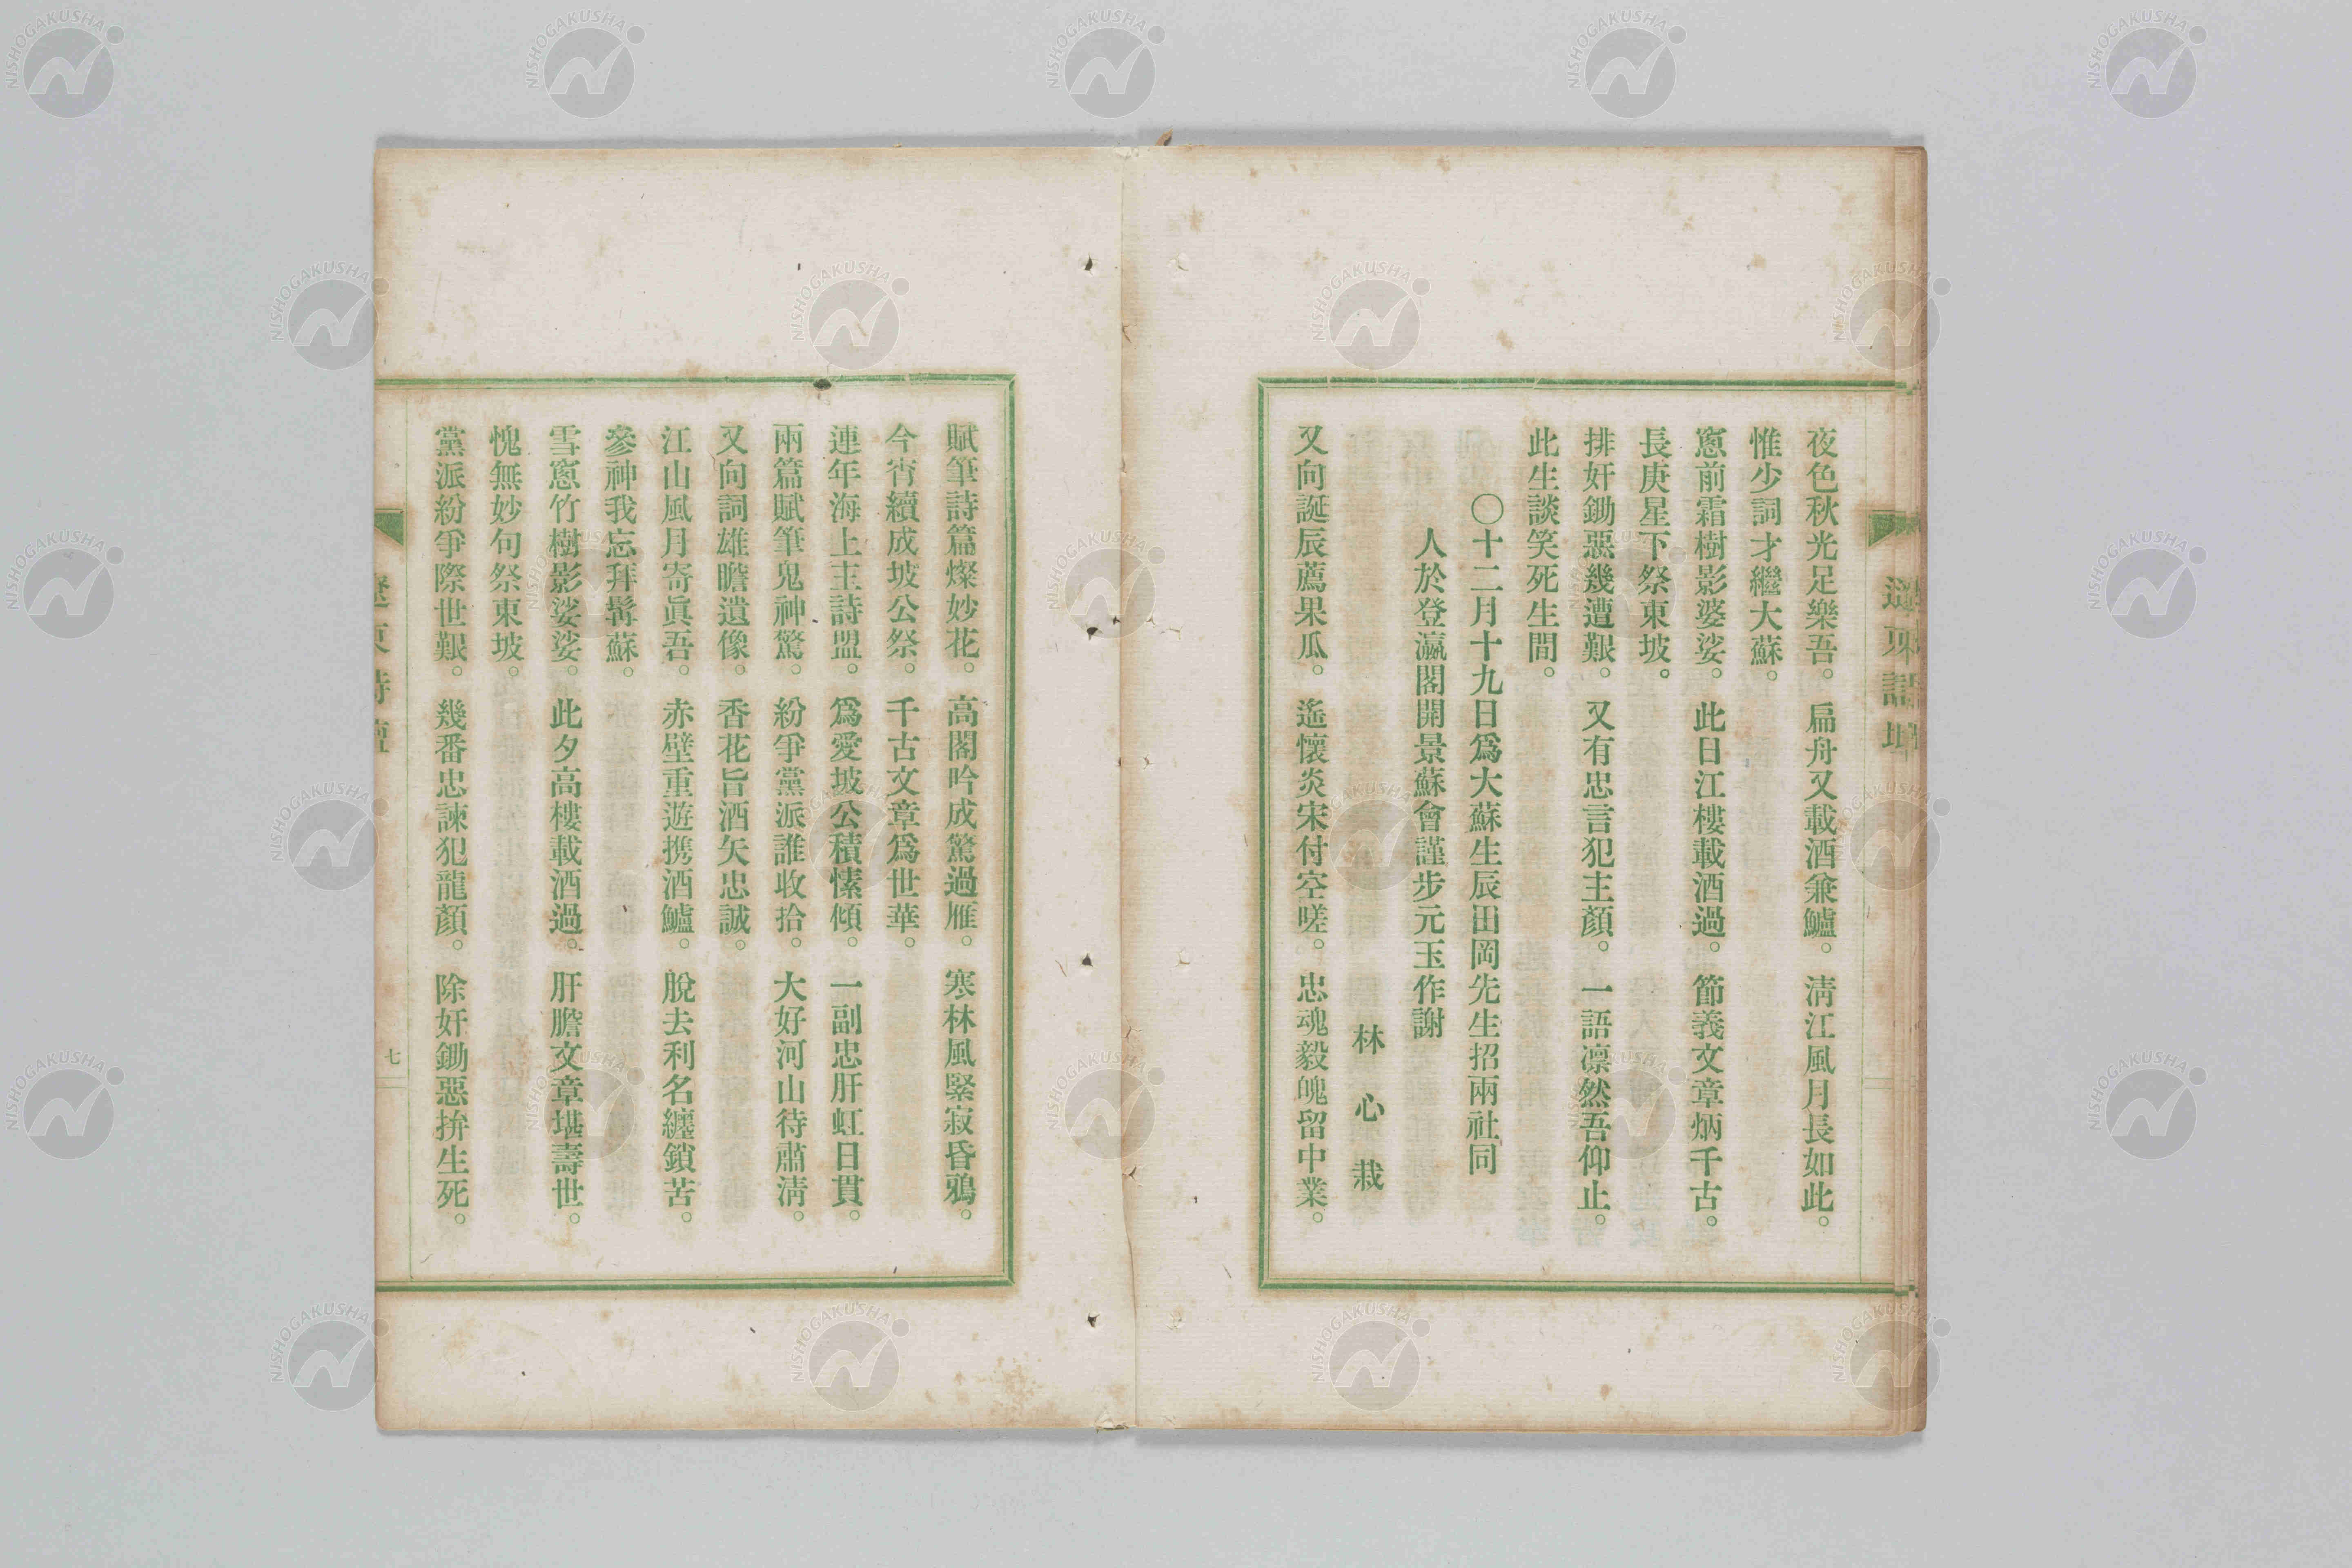 夜色秋光足樂吾。扁舟又載酒兼鱸。淸江風月長如此。
惟少詞才繼大蘇。
窻前霜樹影婆娑。此日江樓載酒過。節義文章炳千古。
長庚星下祭東坡。
排奸鋤惡幾遭艱。又有忠言犯主顏。一語凛然吾仰止。
此生談笑死生間。
〇十二月十九日爲大蘇生辰田岡先生招兩社同
人於登瀛閣開景蘇會謹步元玉作謝
林心栽
又向誕辰薦果瓜。遙懷炎宋付空嗟。忠魂毅魄留中業。
賦筆詩篇燦妙花。高閣吟成驚過雁。寒林風緊寂昏鴉。
今宵續成坡公祭。千古文章爲世華。
連年海上主詩盟。爲愛坡公積愫傾。一副忠肝虹日貫。
兩篇賦筆鬼神驚。紛爭黨派誰收拾。大好河山待肅淸。
又向詞雄瞻遺像。香花旨酒矢忠誠。
江山風月寄眞吾。赤壁重遊携酒鱸。脫去利名纏鎖苦。
參神我忘拜髯蘇。
雪窻竹樹影娑娑。此夕高樓載酒過。肝膽文章堪壽世。
愧無妙句祭東坡。
黨派紛爭際世艱。幾番忠諫犯龍顏。除奸鋤惡拚生死。
遼東詩壇
七
NISHOGAKUSHA